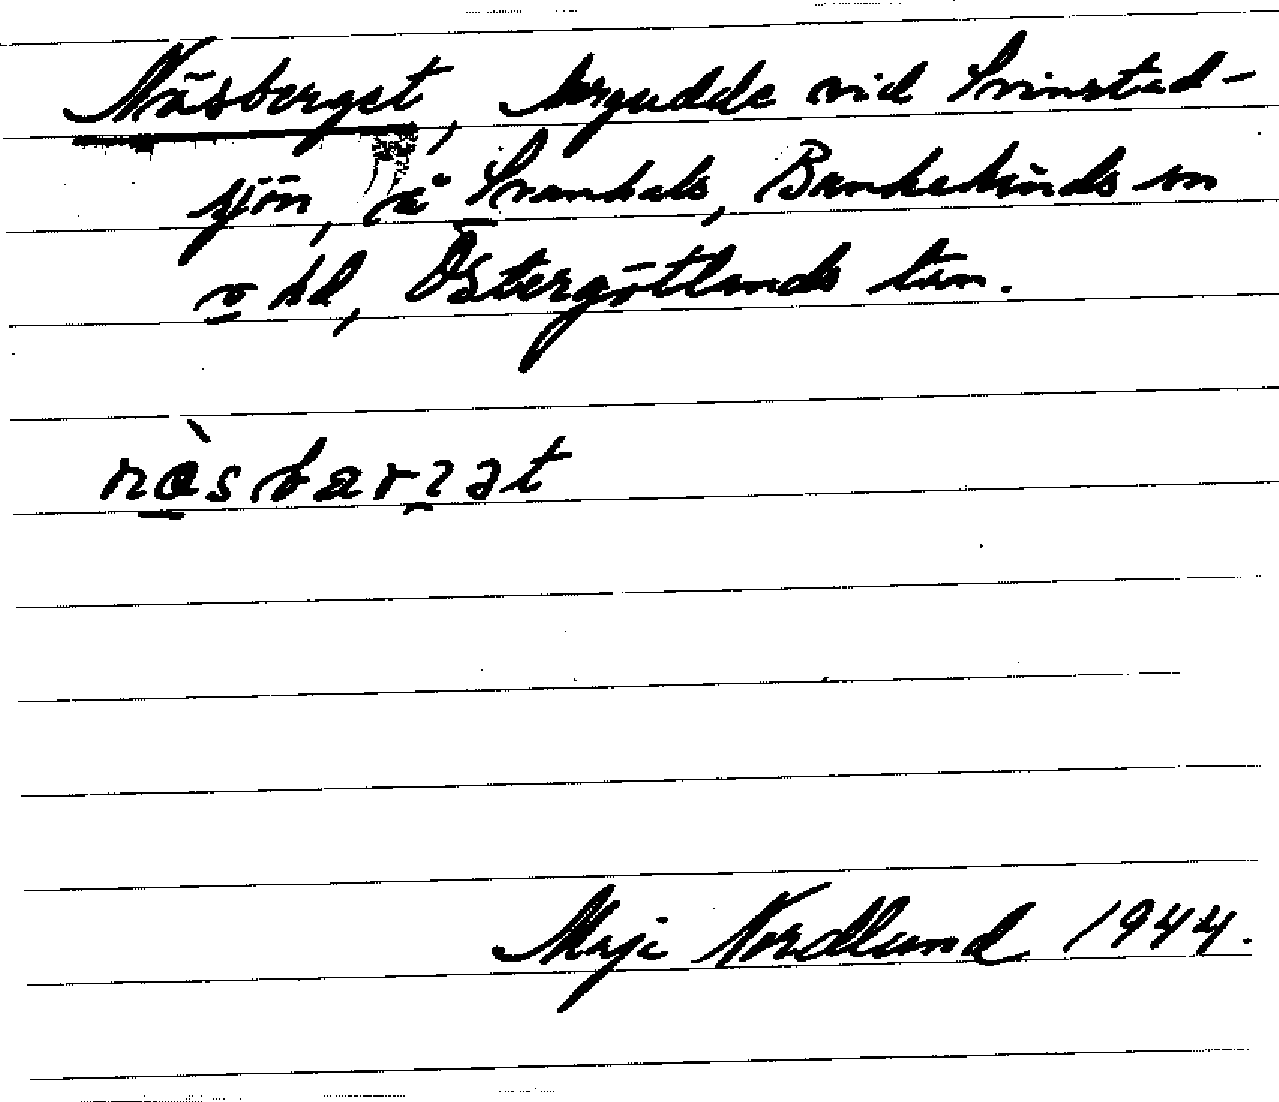 Näsberget, bergudde vid Svinstad-
sjön, å Svanhals, Bankekinds sn
o hd, Östergötlands län.
nàsbarʒət
Maja Nordlund 1944.